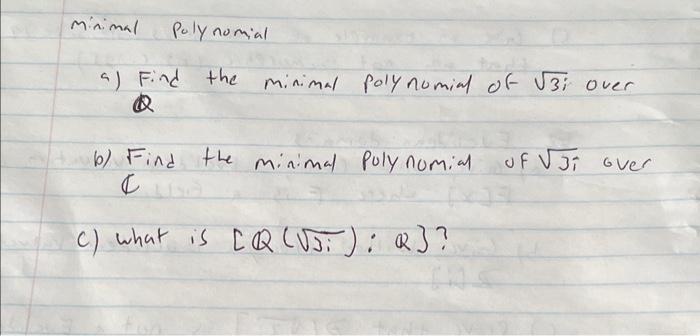 minimal polynomial
a) Find the minimal polynomial of √3i over
Q
b) Find the minimal polynomial of √3i over
C
c) what is [Q(√3i): Q]?